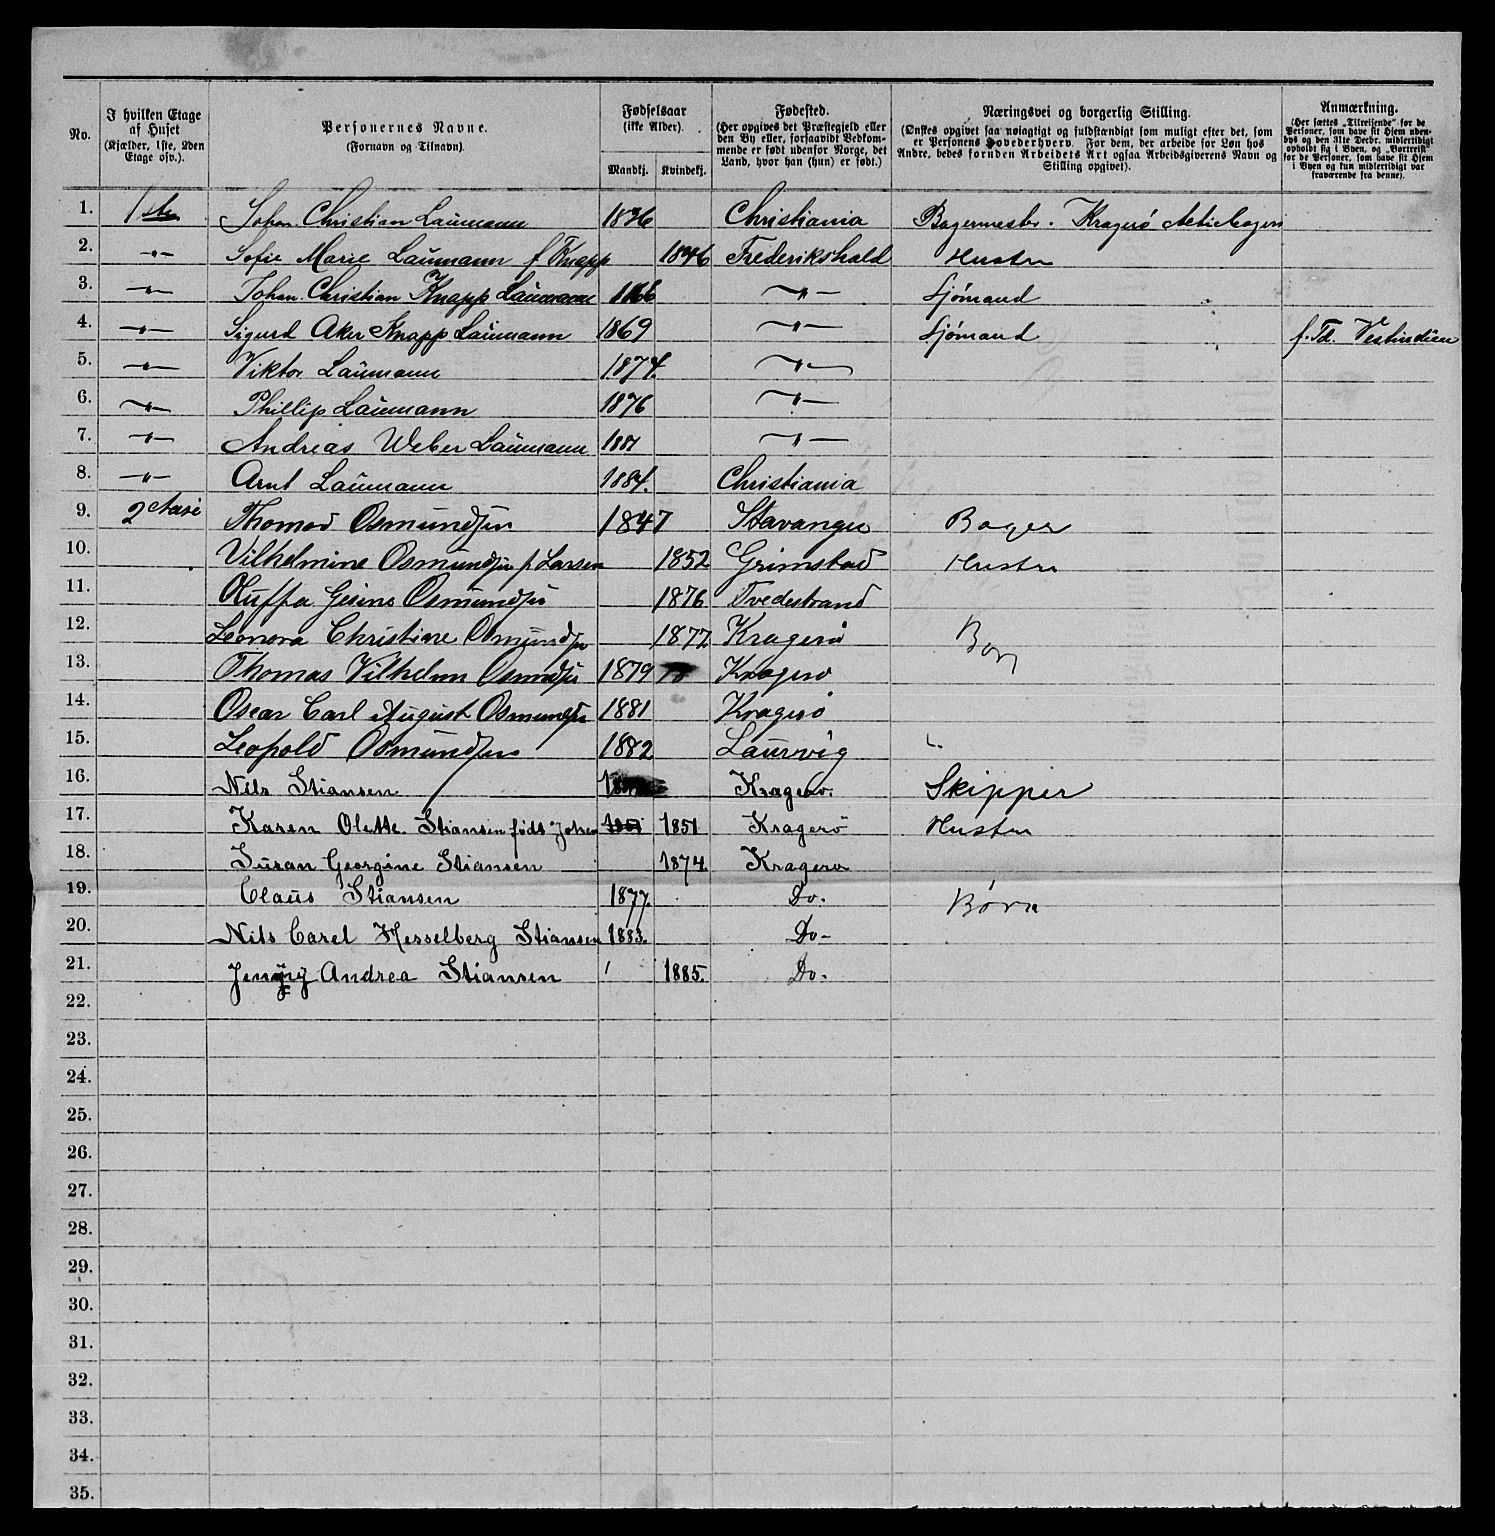 No.
I hvilken Etage af Huset
(Kjælder, 1ste, 2den Etage osv.).
Personernes Navne.
(Fornavn og Tilnavn).
Fødselsaar
(ikke Alder).
Mandkj. Kvindekj.
Fødested.
(Her opgives det Præstegjeld eller den By eller, forsaavidt Vedkommende er født udenfor Norge, det Land, hvor han (hun) er født.)
Næringsvei og borgerlig Stilling.
(Ønskes opgivet saa nøiagtigt og fuldstændigt som muligt efter det, som er Personens Hovederhverv. For dem, der arbeide for Løn hos Andre, bedes foruden Arbeidets Art ogsaa Arbeidsgiverens Navn og Stilling opgivet).
Anmærkning.
(Her sættes „Tilreisende" for de Personer, som have sit Hjem udenbys og den 31te Decbr. midlertidigt opholdt sig i Byen, og „Bortreist" for de Personer, som have sit Hjem i Byen og kun midlertidigt var fraværende fra denne).
1. 1ste Johan Christian Laumann 1836 Christiania Bagermester. Kragerö Actiebageri
2. -"- Sofie Marie Laumann f. Knapp 1846 Frederikshald Hustru
3. -"- Johan Christian Knapp Laumann 1866 -"- Sjömand
4. -"- Sigurd Aker Knapp Laumann 1869 -"- Sjömand f. Td. Vestindien
5. -"- Viktor Laumann 1874. -"-
6. -"- Phillip Laumann 1876 -"-
7. -"- Andreas Weber Laumann 1881 -"-
8. -"- Arnt Laumann 1884. Christiania
9. 2 Thomas Osmundsen 1847 Stavanger Bager
10. Vilhelmine Osmundsen f. Larsen 1852 Grimstad Hustru
11. Osmundsen 1876 Tvedestrand
12. Leonora Christine Osmundsen 1877 Kragerö Børn
13. Thomas Vilhelm Osmundsen 1879 Kragerø
14. Oscar Carl August Osmundsen 1881 Kragerö
15. Leopold Osmundsen 1882 Laurvig "
16. Nils Stiansen Kragerö. Skipper
17. Karen Olette Stiansen född 1851 1851 Kragerö Hustru
18. Susan Georgine Stiansen 1874. Kragerø
19. Claus Stiansen 1877. Do. Børn
20. Nils Carel Hesselberg Stiansen 1883. Do-
21. Jenny Andrea Stiansen 1885. Do.
22.
23.
24.
25.
26.
27.
28.
29.
30.
31.
32.
33.
34.
35.